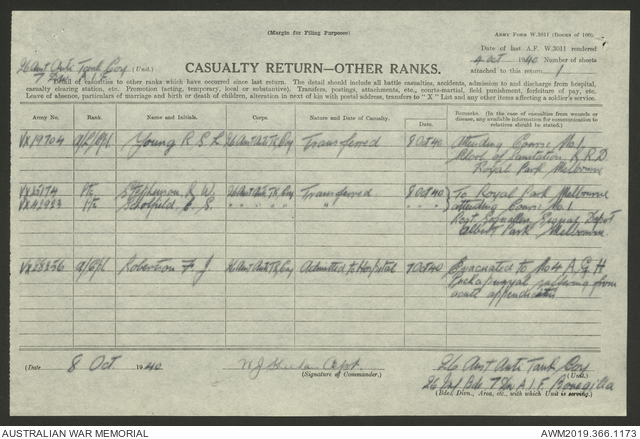 (Margin for Filing Purposes)
ARMY FORM W.3011 (Books of 100).
Date of last A.F. W.3011 rendered
4 Oct 1940 Number of sheets
attached to this return 1
26 Aust Anti Tank Coy (Unit.)
7 Div A.I.F.
CASUALTY RETURN—OTHER RANKS.
Detail of casualties to other ranks which have occurred since last return. The detail should include all battle casualties, accidents, admission to and discharge from hospital,
casualty clearing station, etc. Promotion (acting, temporary, local or substantive). Transfers, postings, attachments, etc., courts-martial, field punishment, forfeiture of pay, etc.
Leave of absence, particulars of marriage and birth or death of children, alteration in next of kin with postal address, transfers to "X" List and any other items affecting a soldier's service.
Army No. Rank. Name and Initials. Corps. Nature and Date of Casualty. Date. Remarks. (In the case of casualties from wounds or disease, any available information for communication to relatives should be stated.)
VX19704 a/L/Cpl Young R S L 26 Aust Anti Tk Coy Transferred 8 Oct 40 Attending Course No. 1
School of Sanitation R R D
Royal Park Melbourne
Pte Stephenson W. 26 Aust Anti Tk Coy Transferred 8 Oct 40 To Royal Park Melbourne
VX42983 Pte Scholfield E. S. " " " " " " " attending Course No 1
Regt Signallers Signal Depot
Albert Park Melbourne
VX28256 a/Cpl Robertson F. J 26 Aust Anti Tk Coy Admitted to Hospital 7 Oct 40 Evacuated to No 4 A G H
Puckapunyal suffering from
acute appendicitis
(Date 8 Oct 1940 W J Capt.
(Signature of Commander.)
26 Aust Anti Tank Coy
(Unit.)
26 Inf Bde 7 Div A.I.F. Bonegilla
(Bde., Divn., Area, etc., with which Unit is serving.)
AUSTRALIAN WAR MEMORIAL
AWM2019.366.1173